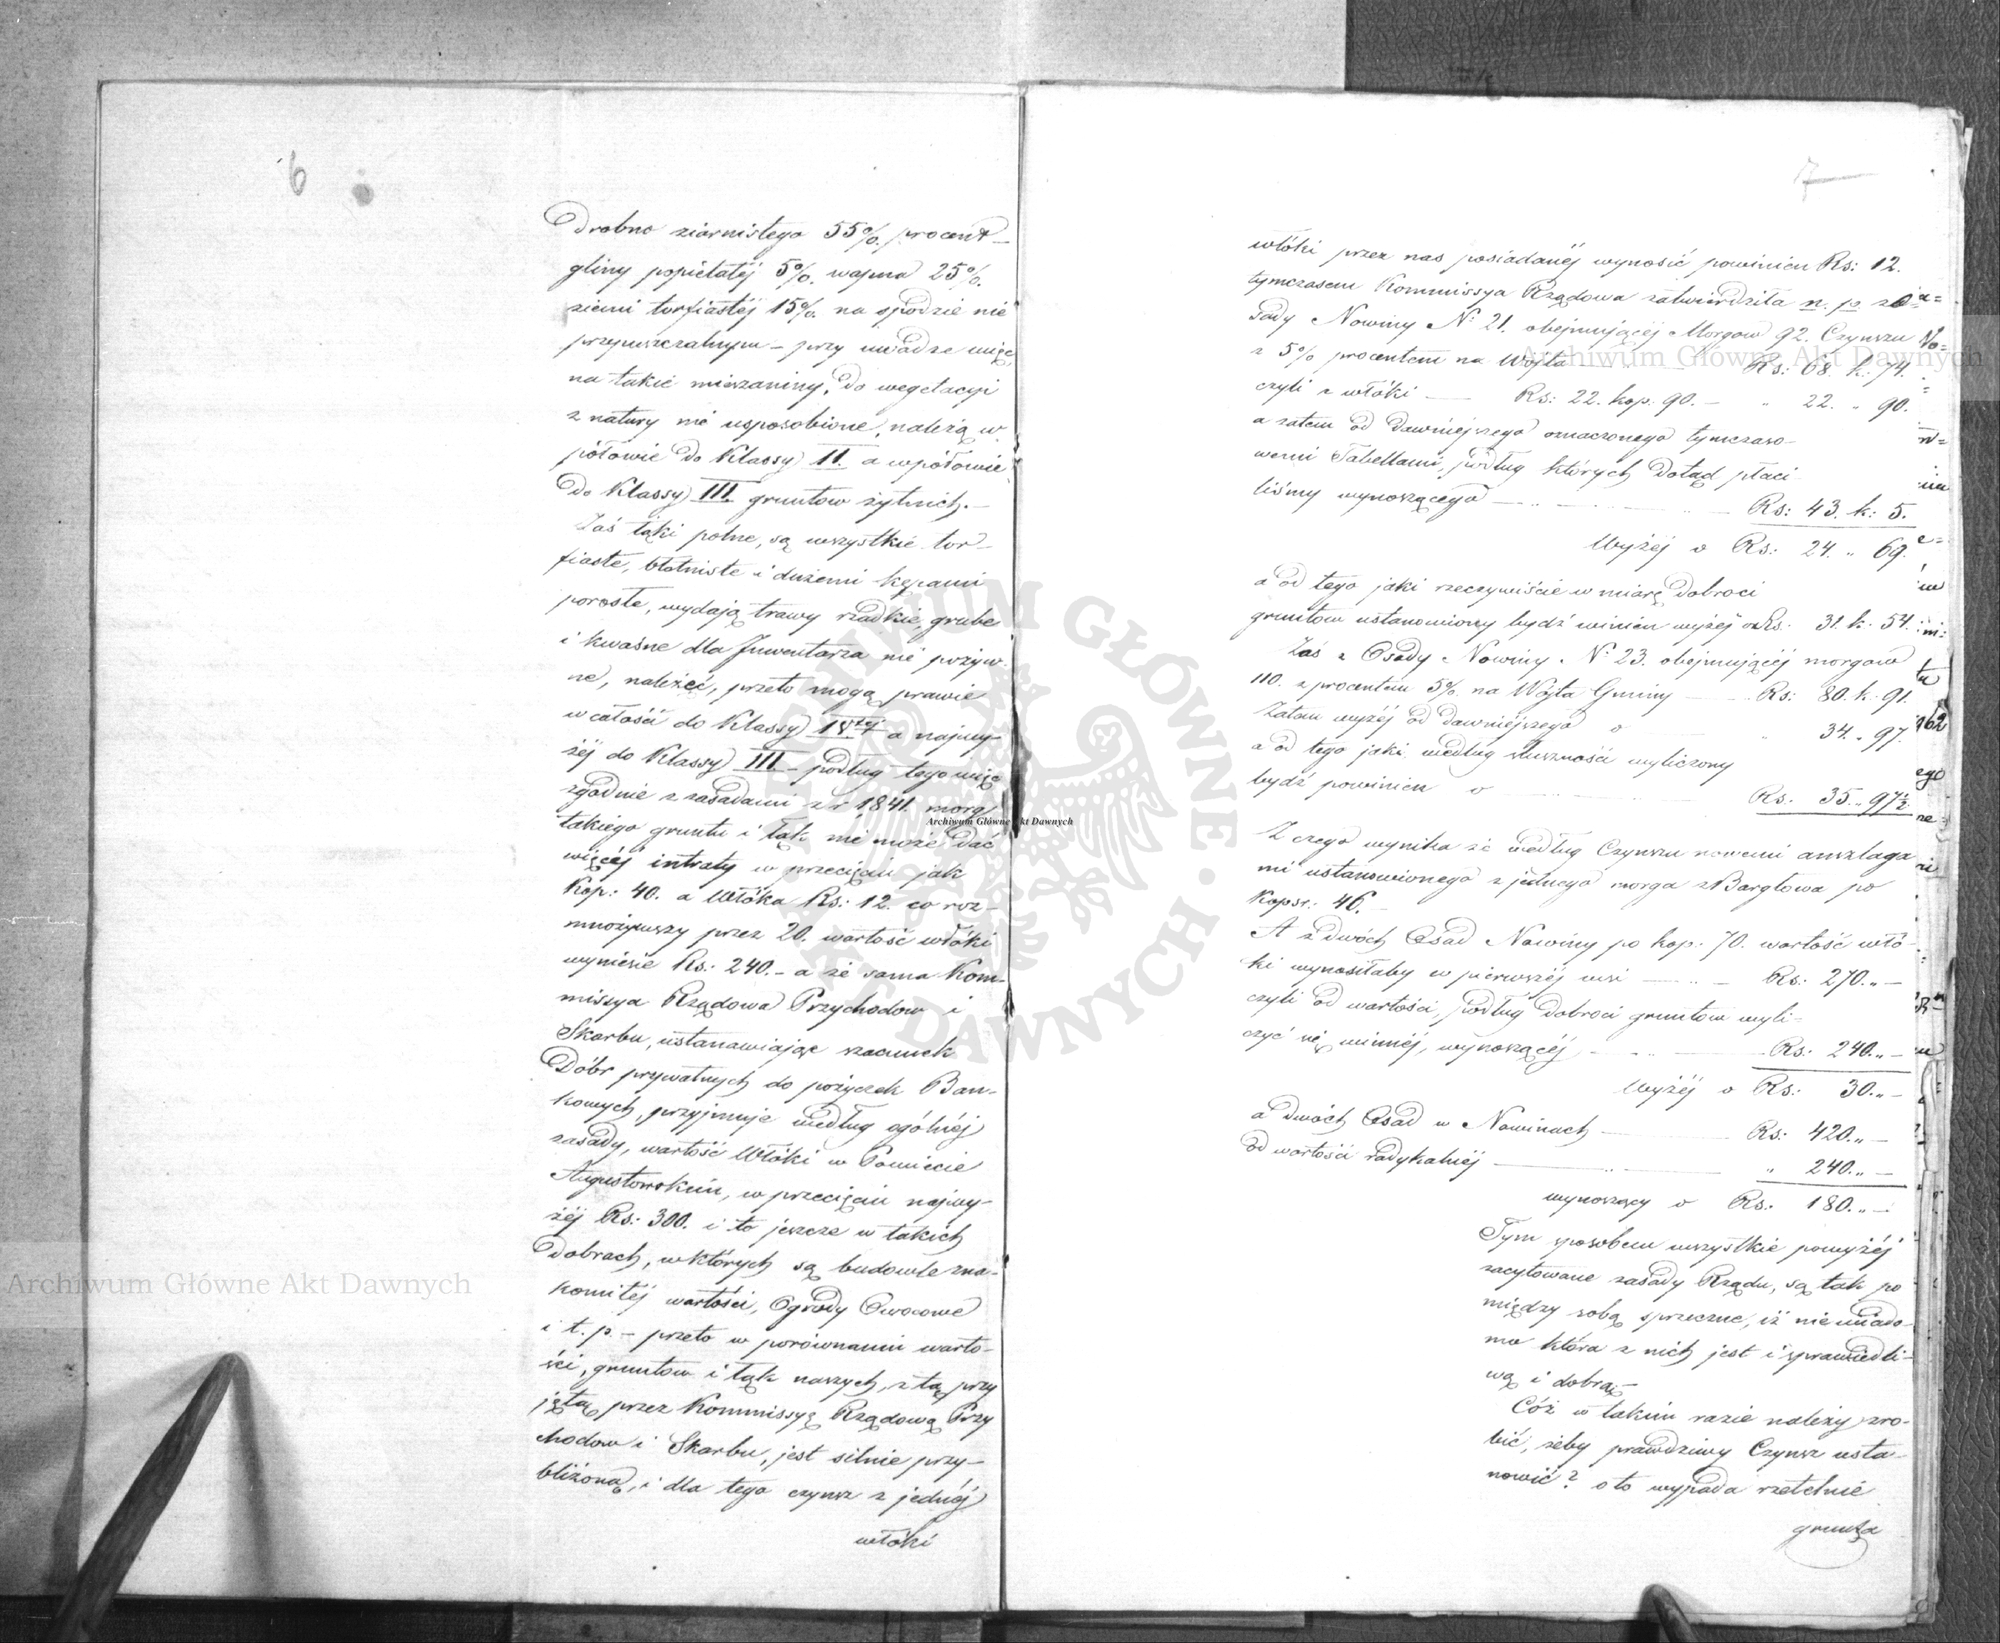 6
Drobno ziarnistego 55%. procent
gliny popielatéj 5%. wapna 25%.
ziemi torfiastéj 15%. na spodzie nie
przepuszczalnym – przy uwadze więc,
na takie mieszaniny, do wegetacyi
z natury nie usposobione, należą w
półowie do Klassy II. a wpółowie
do Klassy III. gruntow żytnich. –
Zaś łąki polne, są wszystkie tor–
fiaste, błotniste i dużemi kępami
poroste, wydają trawy rzadkie, grube
i kwaśne dla Inwentarza nie pożyw–
ne, należéć, przeto mogą prawie
w całości do Klassy IVtéj a najwy–
żéj do Klassy III. – podług tego więc
zgodnie z zasadami z r 1841. morg
takiego gruntu i łąk nie może dać
więcéj intraty w przecięciu jak
Kop: 40. a Włóka Rs: 12. co roz–
mnożywszy przez 20. wartość włóki
wyniesie Rs: 240. – a że sama Kom–
missya Rządowa Przychodow i
Skarbu, ustanawiając szacunek
Dóbr prywatnych do pożyczek Ban–
kowych, przyjmuje według ogólnéj
zasady, wartość Włóki w Powiecie
Augustowskim, w przecięciu najwy–
żéj Rs: 300. i to jeszcze w takich
dobrach, w których są budowle zna–
komitéj wartości, Ogrody Owocowe
i t. p. – przeto w porównaniu warto–
ści, gruntow i łąk naszych, z tą przy
jętą przez Kommissyą Rządową Przy
chodow i Skarbu, jest silnie przy–
bliżoną, i dla tego czynsz z jednéj
włóki
7
włóki przez nas posiadanéj wynosić powinien Rs: 12.
tymczasem Kommissya Rządowa zatwierdziła n. p z O
sady Nowiny No 21. obejmującéj Morgow 92. Czynszu
z 5% procentem na Wójta Rs: 68. k: 74.
czyli z włóki — Rs: 22. kop. 90. – „ 22. „ 90.
a zatem od dawniejszego oznaczonego tymczaso–
wemi Tabellami, podług których dotąd płaci
liśmy wynoszącego — Rs: 43. k: 5.
Wyżéj o Rs: 24. „ 69.
a od tego jaki rzeczywiście w miarę dobroci
gruntow ustanowiony bydź winien wyżéj o Rs. 31. k. 54.
Zaś z Osady Nowiny No 23. obejmującéj morgow
110. z procentem 5% na Wójta Gminy — Rs: 80. k. 91.
Zatem wyżéj od dawniejszego o „ 34. „ 97.
a od tego jaki według słuszności wyliczony
bydź powinien o — Rs. 35. „ 97½
Z czego wynika że według Czynszu nowemi anszlaga
mi ustanowionego z jednego morga z Bargłowa po
Kopsr: 46. –
A z dwóch Osad Nowiny po kop: 70. wartość wló–
ki wynosiłaby w pierwszéj wsi — Rs: 270. „ –
czyli od wartości, podług dobroci gruntow wyli=
czyć się winnéj, wynoszącéj — Rs: 240. „ –
Wyżéj o Rs: 30. „ –
a dwóch Osad w Nowinach — Rs: 420. „ –
od wartości radykalnéj — „ 240. „ –
wynoszący o Rs. 180. „ –
Tym sposobem wszystkie powyżéj
zacytowane zasady Rządu, są tak po
między sobą sprzeczne, iż nie wiado–
mo która z nich jest i sprawiedli–
wą i dobrą –
Cóż w takim razie należy zro–
bić, żeby prawdziwy Czynsz usta–
nowić? oto wypada rzetelnie
grunta
Archiwum Główne Akt Dawnych
Archiwum Główne Akt Dawnych
Archiwum Główne Akt Dawnych
ARCHIWUM GŁÓWNE AKT DAWNYCH